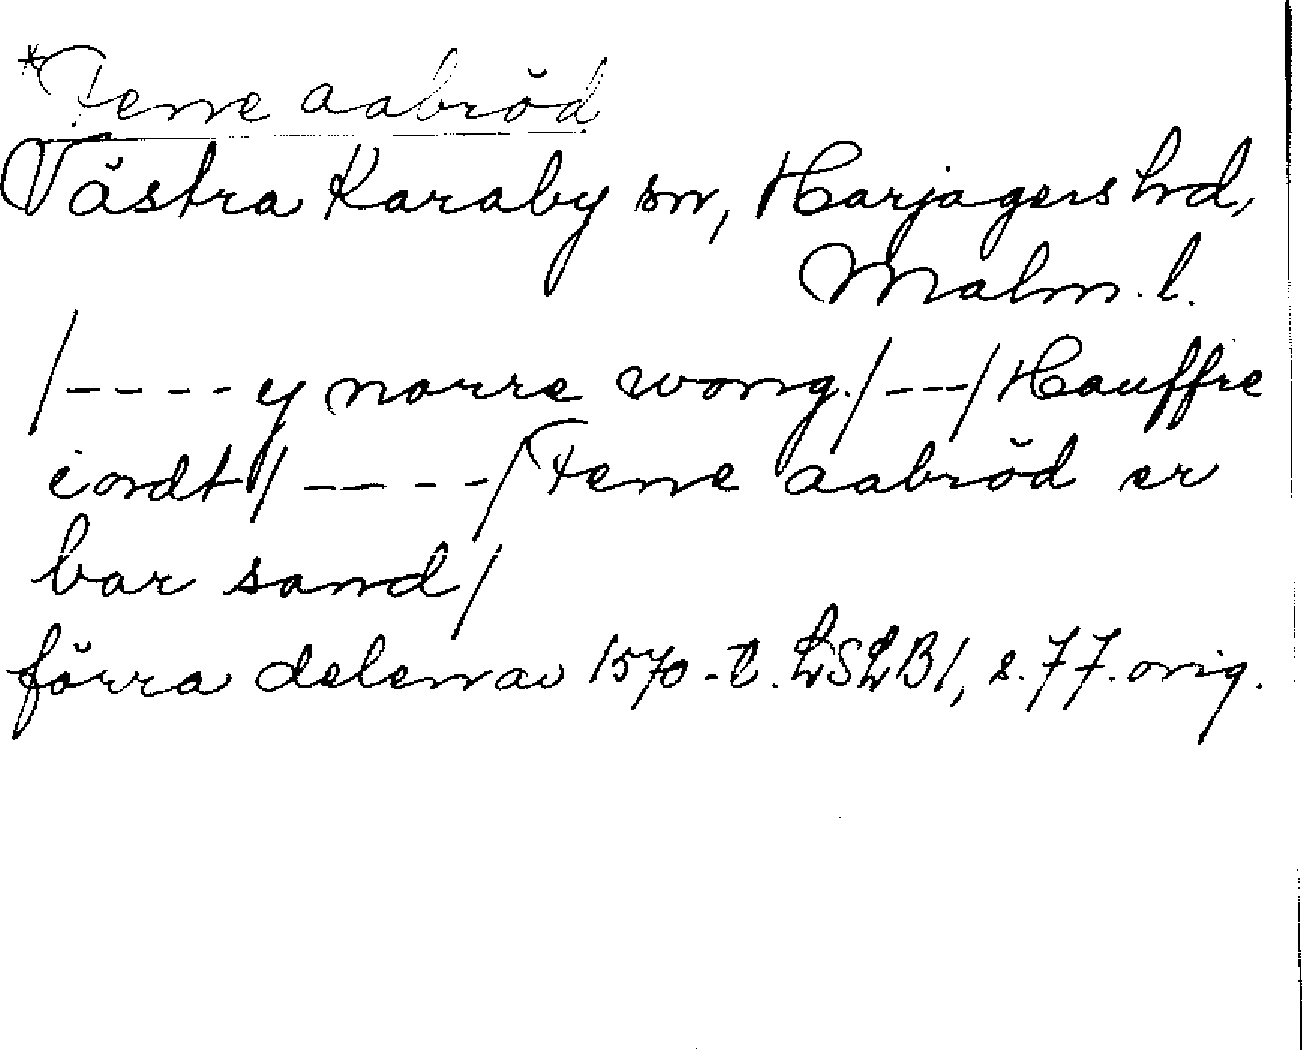 *Ferre aabröd
Västra Karaby sn, Harjagers hd,
Malm. l.
/----y norre wong./---/Hauffre
iordt/----/Ferre aabröd er
bar sand/
förra delen av 1570-t. LSLB1, s. 77. orig.